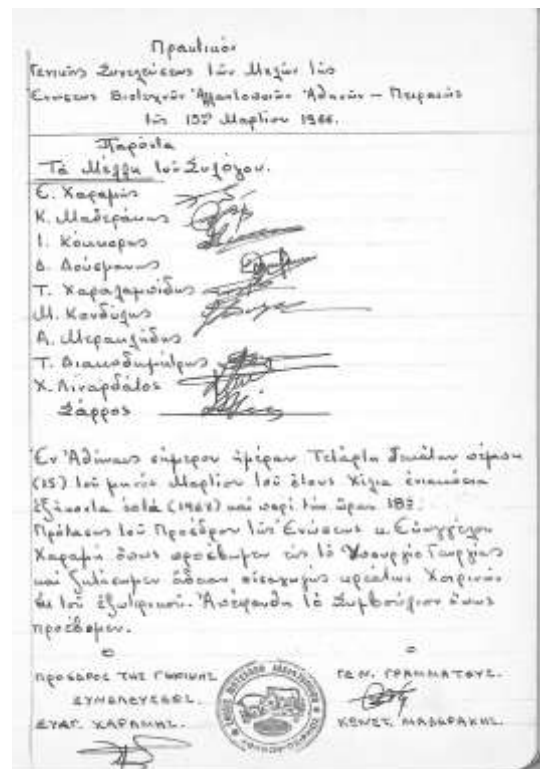 Πρακτικόν
Γενικής Συνελεύσεως τών Μελών τής
Ενώσεως Βιοτεχνών Ἀλλαντοποιών Ἀθηνών – Πειραιώς
τής 15ης Μαρτίου 1966.
Παρόντα
Τά Μέλλη τού Συλόγου.
Ε. Χαραμής
Κ. Μαδεράκης
Ι. Κόκκορης
Δ. Δούσμανης
Τ. Χαραλαμπίδης
Μ. Κονδύλης
Α. Μερακλήδης
Τ. Διακοδημήτρης
Χ. Λιναρδάτος
Σάρρος
Ἐν Ἀθήναις σήμερον ἡμέραν Τετάρτη δεκάτην πέμπτη
(15) τού μηνός Μαρτίου τού έτους χίλια ἐνιακόσια
ἑξήκοντα ἑπτά (1967) καί περί τήν ὥραν 18ην
Πρότασης τού Προέδρου τής Ἑνώσεως κ. Εὐαγγέλου
Χαραμή όπως προέβωμεν εἰς τό Υπουργίο Γεωργίας
καί ζητήσωμεν άδειαν εἰσαγωγής κρέατος Χοιρινού
ἐκ τού ἐξωτερικού. Ἀπεφάνθη τό Συμβούλιον όπως
προέβομεν.
Ο
ΠΡΟΕΔΡΟΣ ΤΗΣ ΓΕΝΙΚΗΣ
ΣΥΝΕΛΕΥΣΕΩΣ.
ΕΥΑΓ. ΧΑΡΑΜΗΣ.
Ο
ΓΕΝ. ΓΡΑΜΜΑΤΕΥΣ.
ΚΩΝΣΤ. ΜΑΔΕΡΑΚΗΣ.